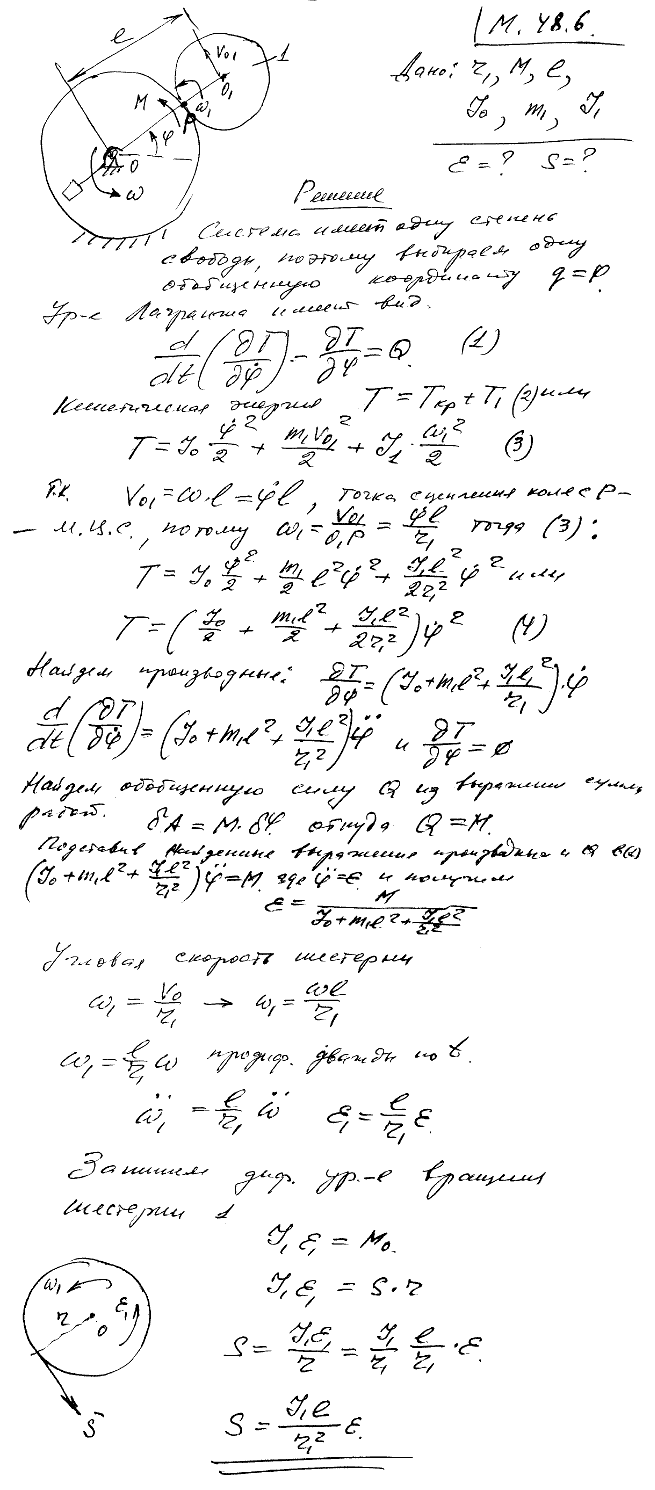 М. 48.6.
Дано: r₁, M, l,
J₀, m₁, J₁
ε = ? S = ?
l
V₀₁
1
O₁
M
ω₁
φ
O
ω
P
Решение
Система имеет одну степень
свободы, поэтому выбираем одну
обобщенную координату q = φ.
Ур-е Лагранжа имеет вид.
d/dt (∂T/∂φ̇) - ∂T/∂φ = Q. (1)
Кинетическая энергия T = Tкр + T₁ (2) или
T = J₀ φ̇²/2 + m₁V₀₁²/2 + J₁ · ω₁²/2 (3)
Т.к. V₀₁ = ω·l = φ̇l, точка сцепления колес P –
– М.Ц.С., потому ω₁ = V₀₁/O₁P = φ̇l/r₁ тогда (3):
T = J₀ φ̇²/2 + m₁/2 l²φ̇² + J₁l²/2r₁² φ̇² или
T = (J₀/2 + m₁l²/2 + J₁l²/2r₁²) φ̇² (4)
Найдем производные: ∂T/∂φ̇ = (J₀ + m₁l² + J₁l₁²/r₁)·φ̇
d/dt (∂T/∂φ̇) = (J₀ + m₁l² + J₁l²/r₁²) φ̈ и ∂T/∂φ = 0
Найдем обобщенную силу Q из выражения суммы
работ. δA = M·δφ. откуда Q = M.
Подставив найденные выражения производных и Q в (1)
(J₀ + m₁l² + J₁l²/r₁²) φ̈ = M. где φ̈ = ε и получим
ε = M/(J₀ + m₁l² + J₁l²/r₁²)
Угловая скорость шестерни
ω₁ = V₀/r₁ → ω₁ = ωl/r₁
ω₁ = l/r₁ ω продиф. дважды по t.
ω̈₁ = l/r₁ ω̈ ε₁ = l/r₁ ε.
Запишем диф. ур-е вращения
шестерни 1
J₁ε₁ = M₀.
J₁ε₁ = S·r
S = J₁ε₁/r = J₁/r₁ l/r₁ · ε.
S = J₁l/r₁² ε.
ω₁
ε₁
r
O
S̄